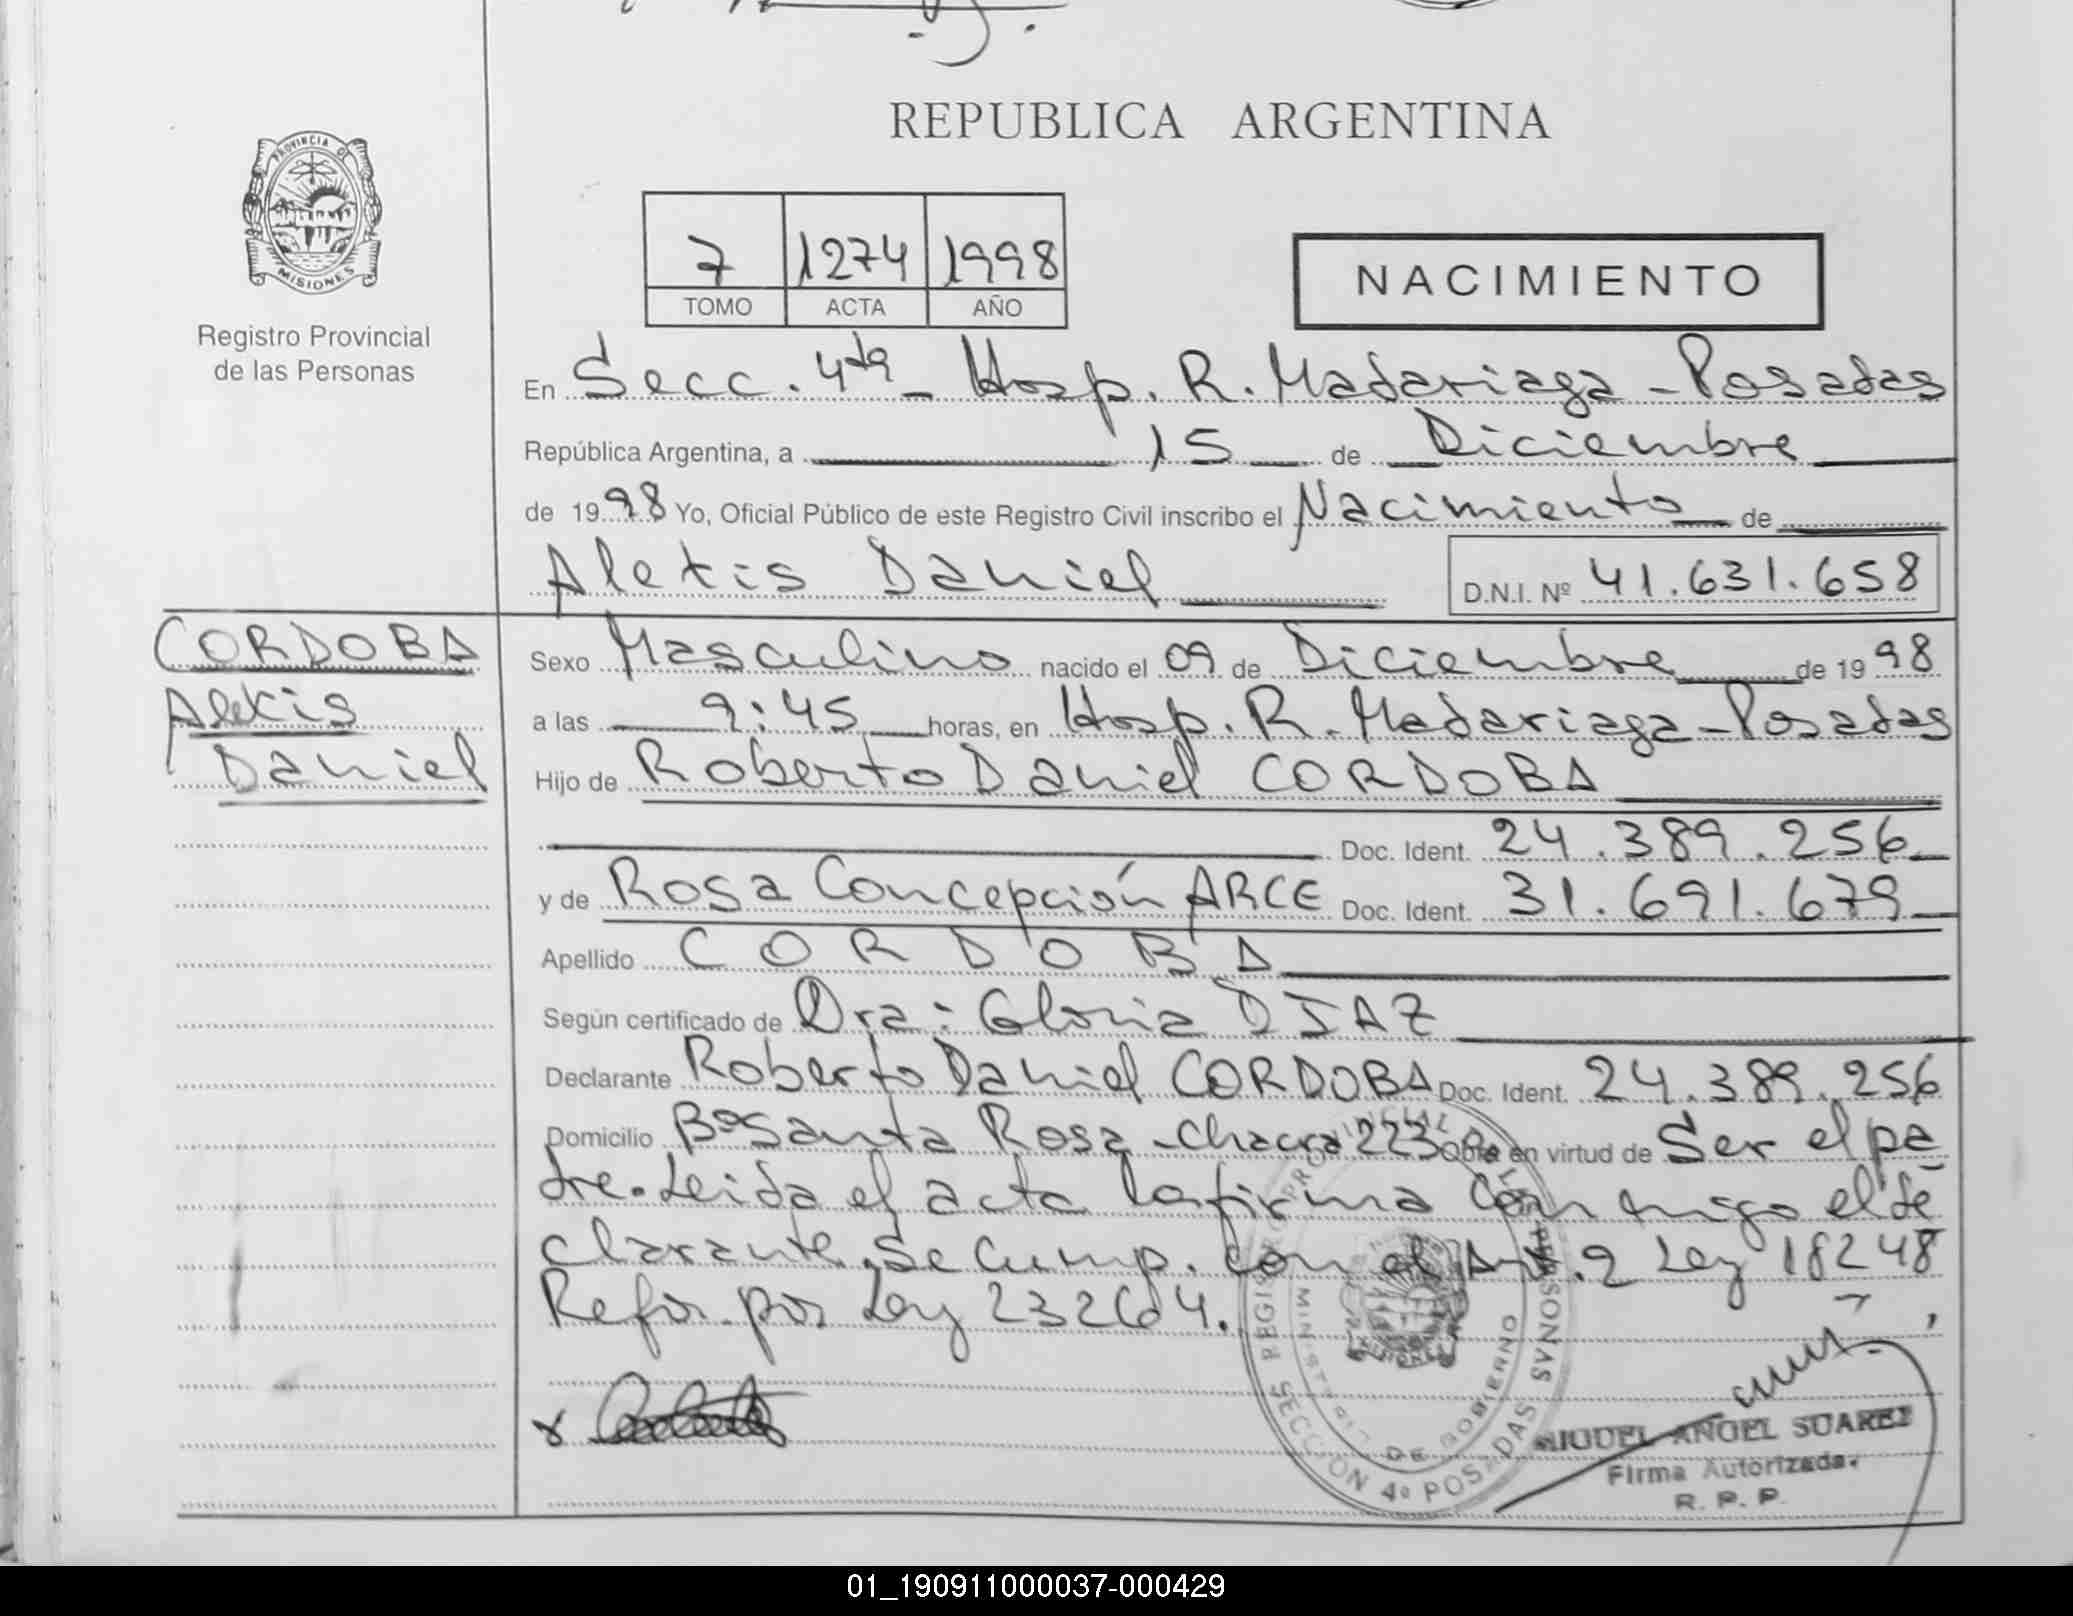 REPUBLICA ARGENTINA
PROVINCIA DE
MISIONES
Registro Provincial
de las Personas
7 1274 1998
TOMO ACTA AÑO
NACIMIENTO
En Secc. 4ta - Hosp. R. Madariaga - Posadas
República Argentina, a 15 de Diciembre
de 1998 Yo, Oficial Público de este Registro Civil inscribo el Nacimiento de
Alexis Daniel D.N.I. Nº 41.631.658
CORDOBA
Alexis
Daniel
Sexo Masculino nacido el 09 de Diciembre de 1998
a las 9:45 horas, en Hosp. R. Madariaga - Posadas
Hijo de Roberto Daniel CORDOBA
Doc. Ident. 24.389.256
y de Rosa Concepción ARCE Doc. Ident. 31.691.679
Apellido CORDOBA
Según certificado de Dra: Gloria DIAZ
Declarante Roberto Daniel CORDOBA Doc. Ident. 24.389.256
Domicilio Bº Santa Rosa - Chacra 223 Obra en virtud de Ser el pa
dre. Leida el acta la firma conmigo el de
clarante. Se Cump. con el Art. 2 Ley 18248
Refor. por Ley 23264.
REGISTRO PROVINCIAL DE LAS PERSONAS
MINISTERIO DE GOBIERNO
SECCION 4º POSADAS
MISIONES
MIGUEL ANGEL SUAREZ
Firma Autorizada
R. P. P.
01_190911000037-000429